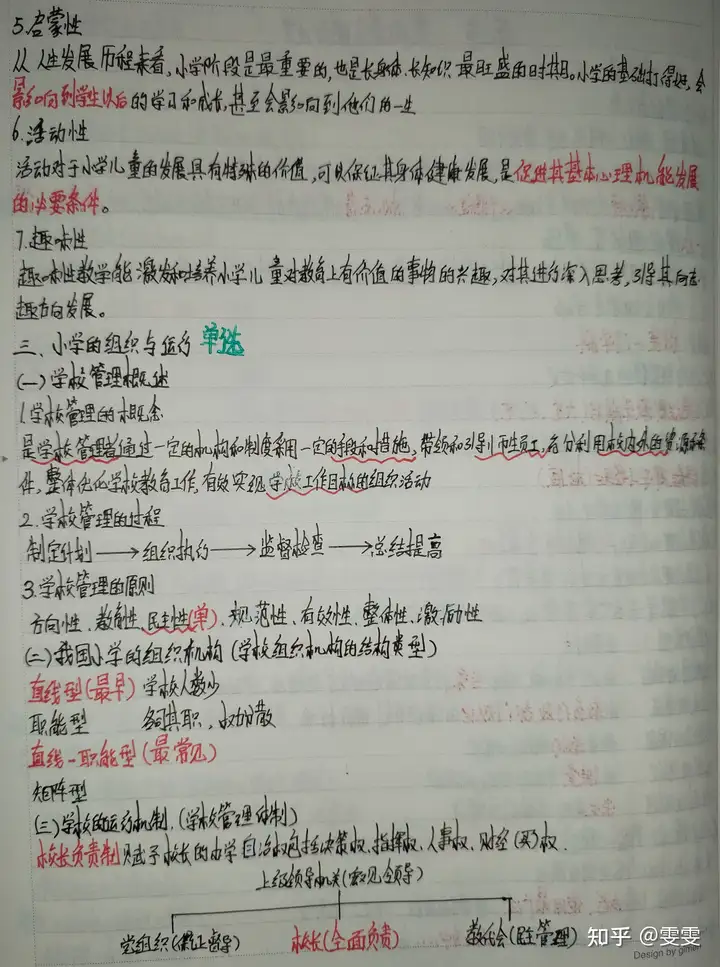 5.启蒙性
从人生发展历程来看,小学阶段是最重要的,也是长身体、长知识最旺盛的时期。小学的基础打得好,会
影响到学生以后的学习和成长,甚至会影响到他们的一生
6.活动性
活动对于小学儿童的发展具有特殊的价值,可以保证其身体健康发展,是促进其基本心理机能发展
的必要条件。
7.趣味性
趣味性教学能激发和培养小学儿童对教育上有价值的事物的兴趣,对其进行深入思考,引导其向志
趣方向发展。
三、小学的组织与运行 单选
(一)学校管理概述
1.学校管理的概念
是学校管理者通过一定的机构和制度采用一定的手段和措施,带领和引导师生员工,充分利用校内外的资源和条
件,整体优化学校教育工作,有效实现学校工作目标的组织活动
2.学校管理的过程
制定计划→组织执行→监督检查→总结提高
3.学校管理的原则
方向性、教育性、民主性(单)、规范性、有效性、整体性、激励性
(二)我国小学的组织机构(学校组织机构的结构类型)
直线型(最早) 学校人数少
职能型 各司其职,权力分散
直线-职能型(最常见)
矩阵型
(三)学校的运行机制.(学校管理体制)
校长负责制 赋予校长的办学自治权包括决策权、指挥权、人事权、财经(务)权.
上级领导机关(宏观领导)
党组织(保证督导) 校长(全面负责) 教代会(民主管理)
知乎 @雯雯
Design by